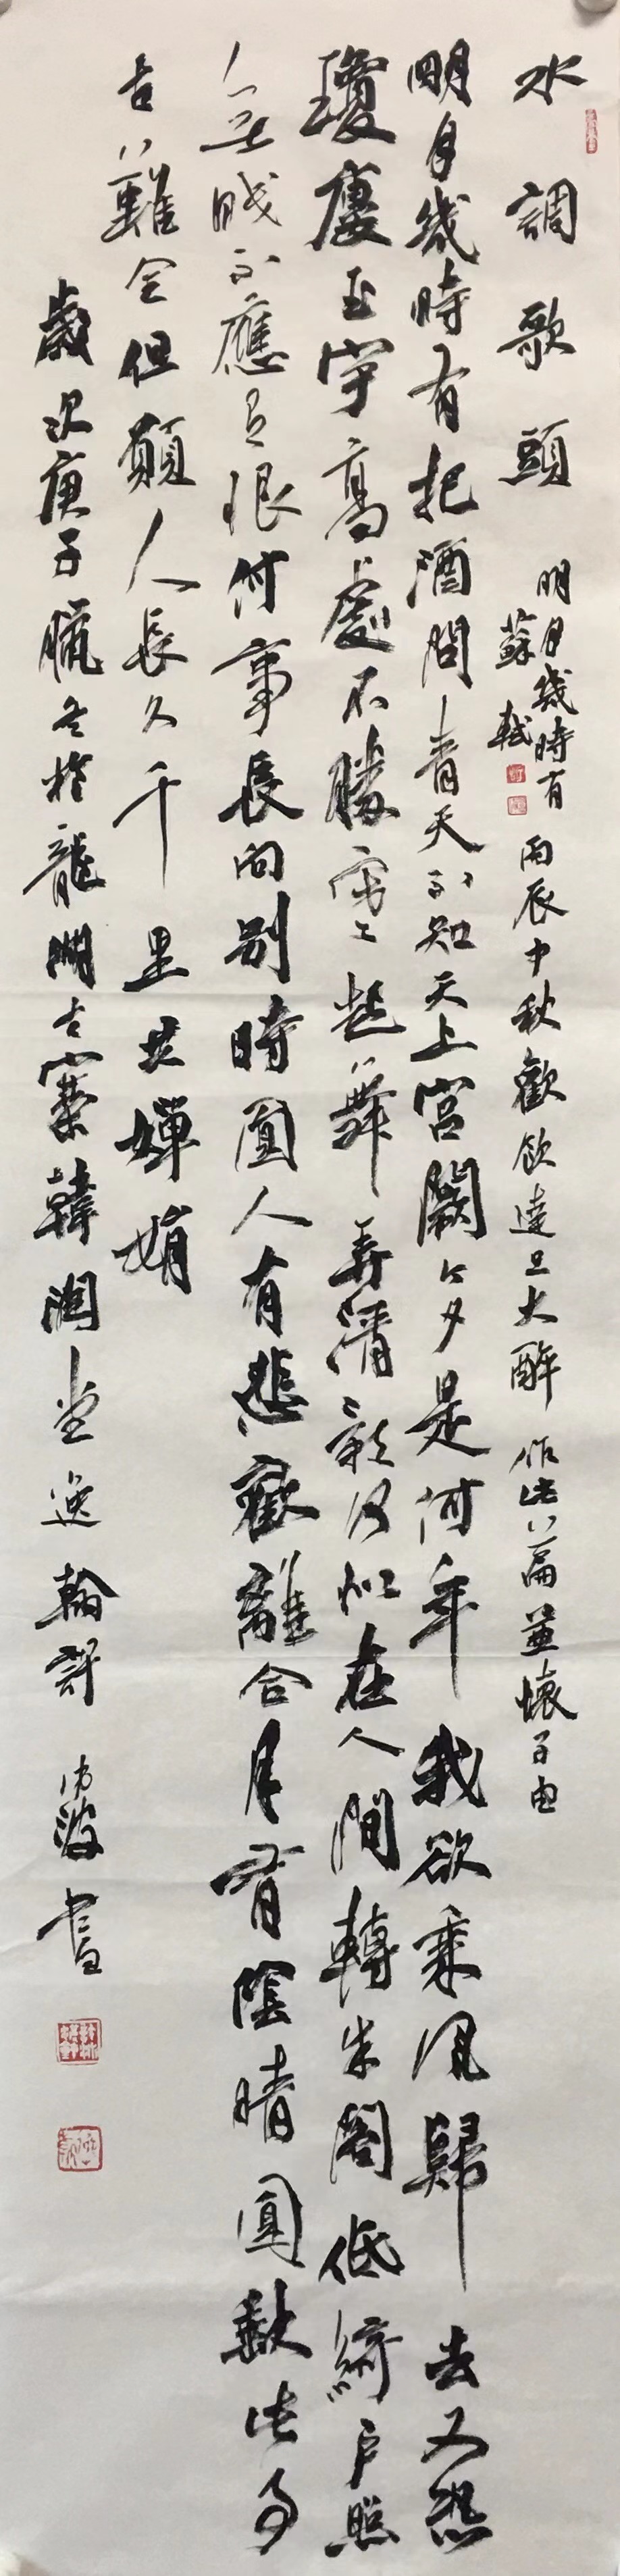 水調歌頭 明月幾時有 蘇軾 丙辰中秋歡飲達旦大醉作此篇並懷子由
明月幾時有把酒問青天不知天上宮闕今夕是何年我欲乘風歸去又恐
瓊廔玉宇高處不勝寒起舞弄清影何似在人間轉朱閣低綺戶照
無眠不應有恨何事長向別時圓人有悲歡離合月有陰晴圓缺此事
古難全但願人長久千里共嬋娟
歲次庚子臘冬於龍湖古寨韓潤堂逸翰軒 波書